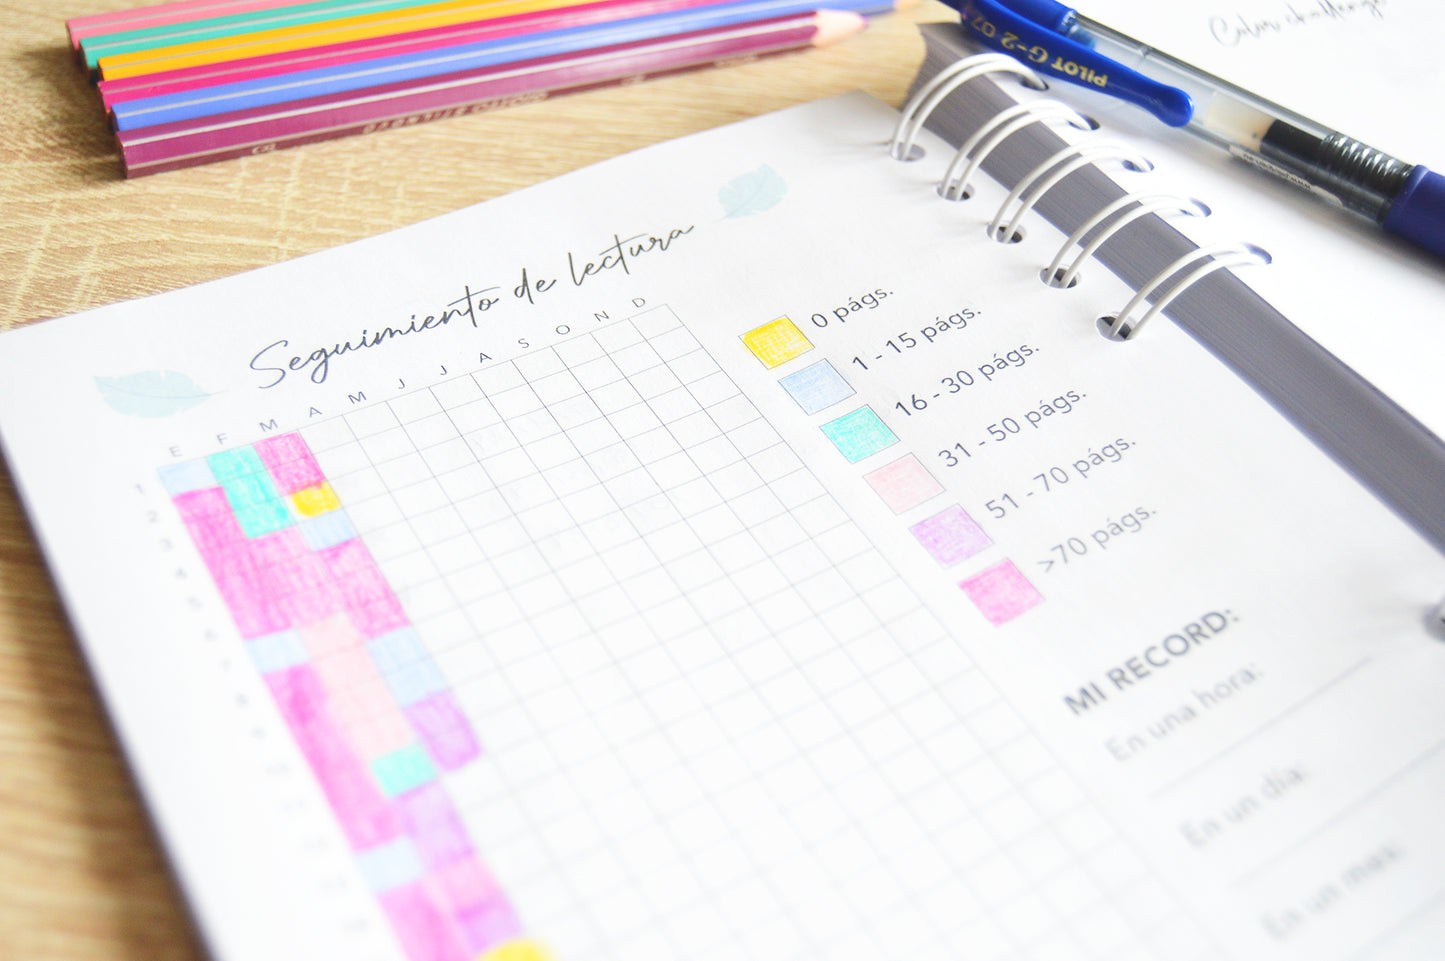 Color challenge
PILOT G-2 07
Seguimiento de lectura
E F M A M J J A S O N D
1
2
3
4
5
6
7
8
9
0 págs.
1 - 15 págs.
16 - 30 págs.
31 - 50 págs.
51 - 70 págs.
>70 págs.
MI RECORD:
En una hora:
En un día:
En un mes: